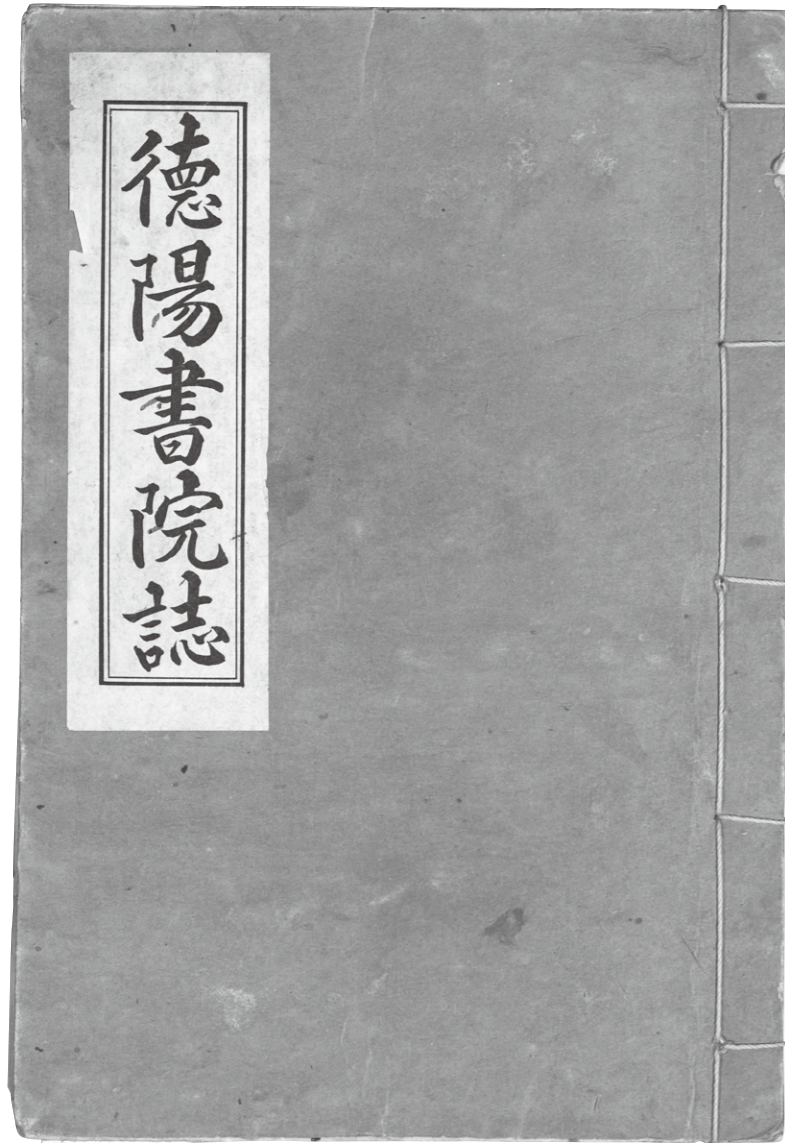 德陽書院誌